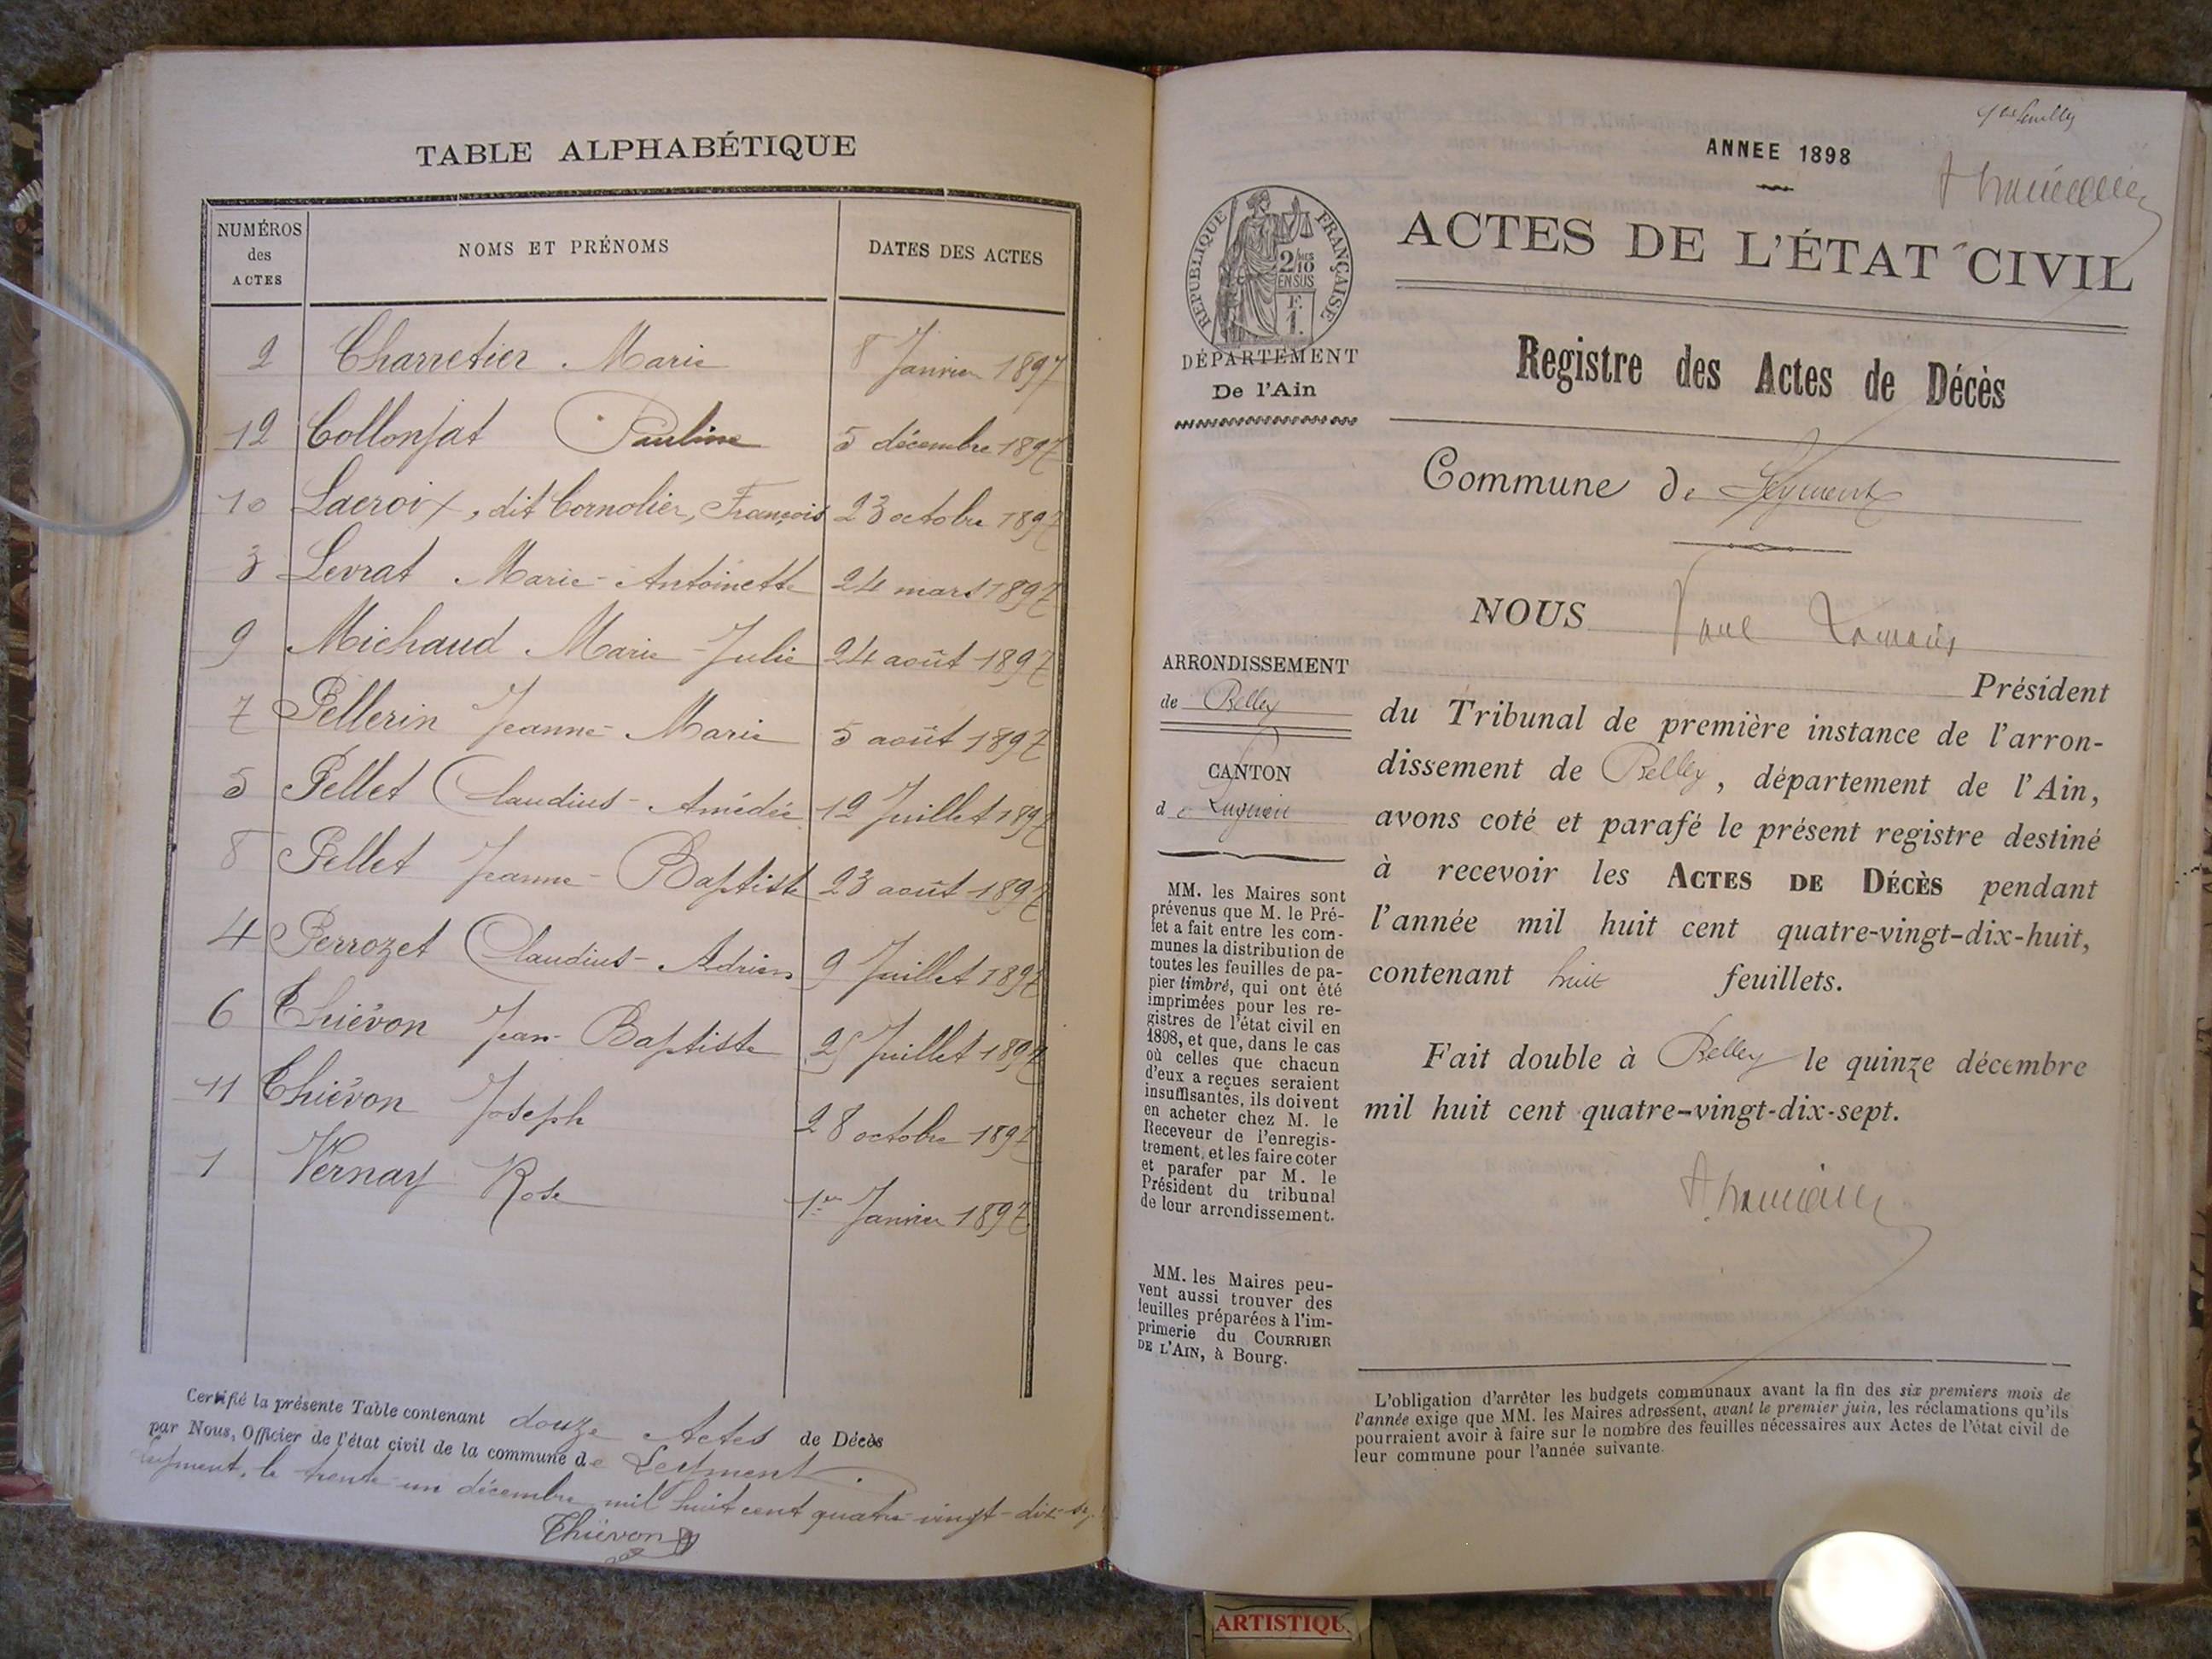 TABLE ALPHABÉTIQUE
NUMÉROS
des
ACTES
NOMS ET PRÉNOMS
DATES DES ACTES
2 Charretier Marie 8 Janvier 1897
12 Collonjat Pauline 5 décembre 1897
10 Lacroix, dit Cornolier, François 23 octobre 1897
3 Levrat Marie-Antoinette 24 mars 1897
9 Michaud Marie-Julie 24 août 1897
7 Pellerin Jeanne-Marie 5 août 1897
5 Pellet Claudius-Amédée 12 Juillet 1897
8 Pellet Jeanne-Baptiste 23 août 1897
4 Perrozet Claudius-Adrien 9 Juillet 1897
6 Thiévon Jean-Baptiste Juillet 1897
11 Thiévon Joseph 28 octobre 1897
1 Vernay Rose 1er Janvier 1897
Certifié la présente Table contenant douze Actes de Décès
par Nous, Officier de l'état civil de la commune de Leyment.
Leyment, le trente-un décembre mil huit cent quatre-vingt-dix-sep
Thiévon
ANNEE 1898
RÉPUBLIQUE FRANÇAISE
2/10 MES
EN SUS
F.
1.
ACTES DE L'ÉTAT CIVIL
DÉPARTEMENT
De l'Ain
Registre des Actes de Décès
Commune de Leyment
ARRONDISSEMENT
de Belley
CANTON
de Lagnieu
MM. les Maires sont
prévenus que M. le Pré-
fet a fait entre les com-
munes la distribution de
toutes les feuilles de pa-
pier timbré, qui ont été
imprimées pour les re-
gistres de l'état civil en
1898, et que, dans le cas
où celles que chacun
d'eux a reçues seraient
insuffisantes, ils doivent
en acheter chez M. le
Receveur de l'enregis-
trement, et les faire coter
et parafer par M. le
Président du tribunal
de leur arrondissement.
MM. les Maires peu-
vent aussi trouver des
feuilles préparées à l'im-
primerie du COURRIER
DE L'AIN, à Bourg.
NOUS
Président
du Tribunal de première instance de l'arron-
dissement de Belley, département de l'Ain,
avons coté et parafé le présent registre destiné
à recevoir les ACTES DE DÉCÈS pendant
l'année mil huit cent quatre-vingt-dix-huit,
contenant huit feuillets.
Fait double à Belley le quinze décembre
mil huit cent quatre-vingt-dix-sept.
L'obligation d'arrêter les budgets communaux avant la fin des six premiers mois de
l'année exige que MM. les Maires adressent, avant le premier juin, les réclamations qu'ils
pourraient avoir à faire sur le nombre des feuilles nécessaires aux Actes de l'état civil de
leur commune pour l'année suivante.
ARTISTIQU